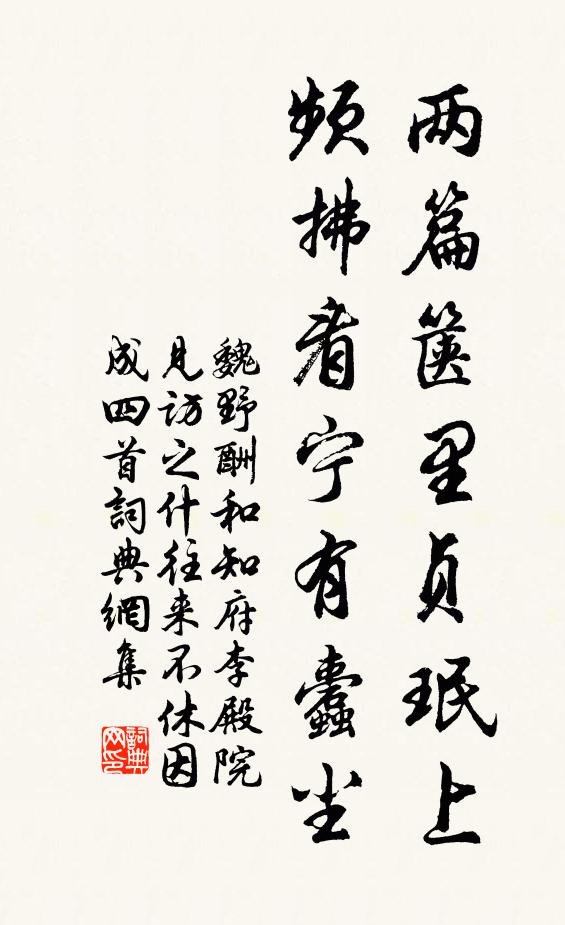 两篇箧里贞珉上
频拂看宁有蠹尘
魏野酬和知府李殿院
见访之什往来不休因
成四首詞典網集
詞典
网印